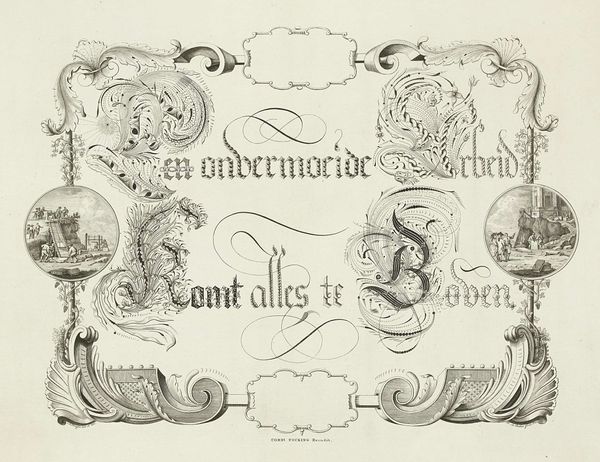 Een onvermoeide Arbeid
Komt alles te Boven.
FOCKING Excudit.